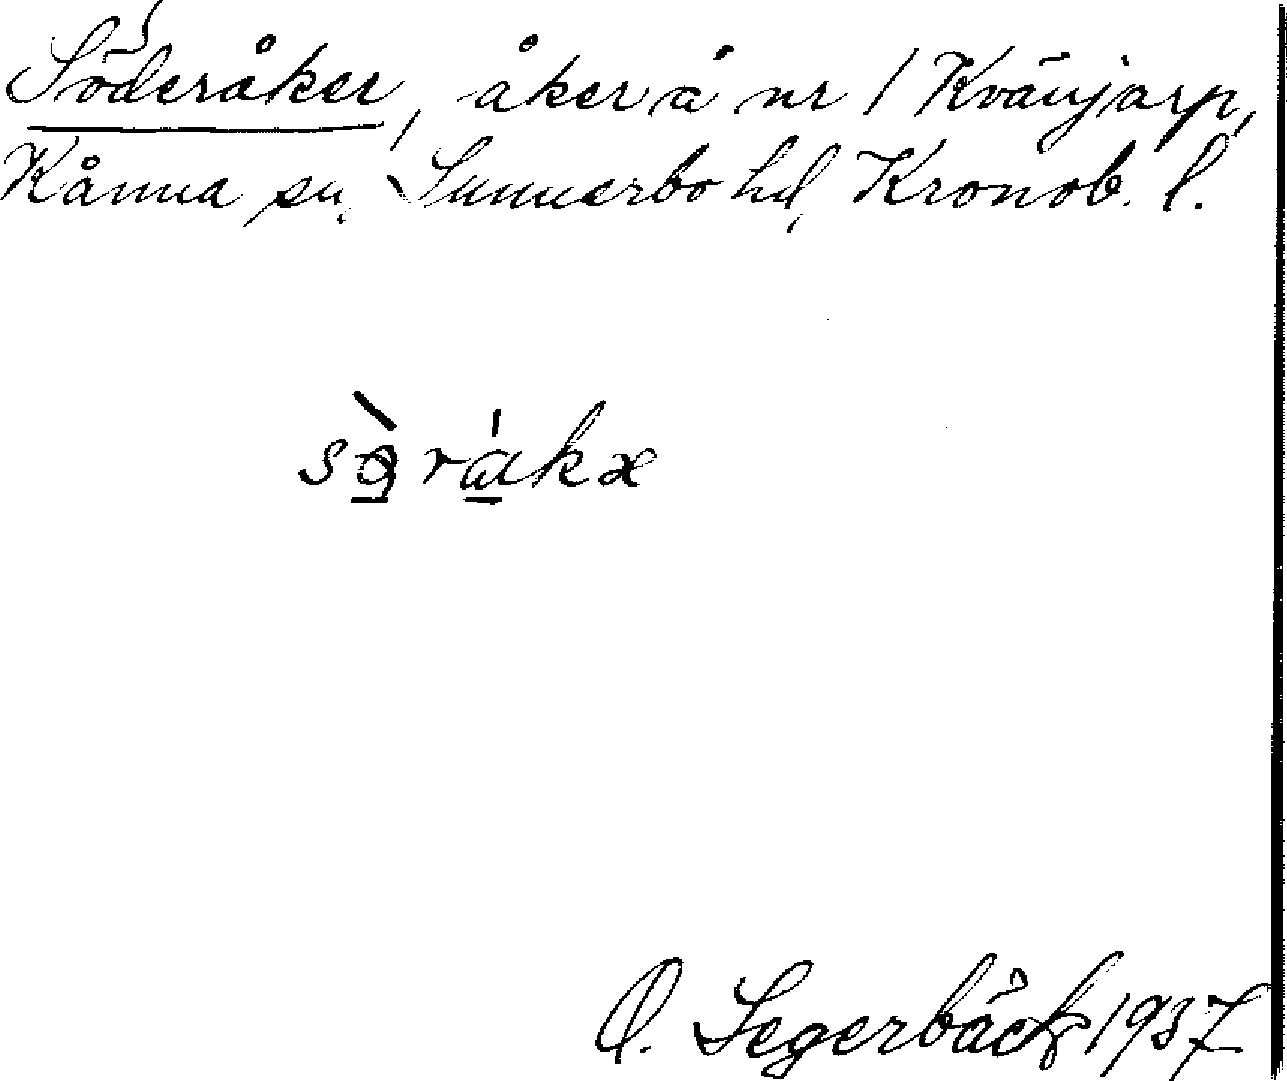 Söderåker, åker å nr 1 Kvänjarp,
Kånna sn, Sunnerbo hd, Kronob. l.
O. Segerbäck 1937